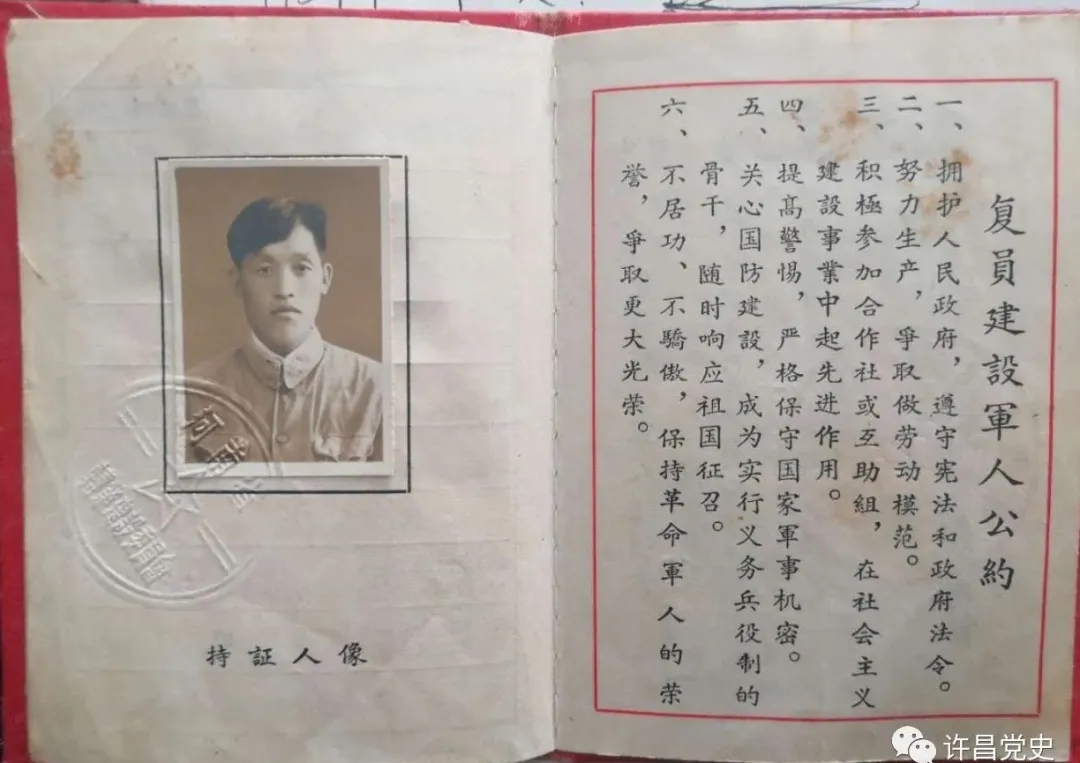 复員建設軍人公約
一、拥护人民政府，遵守宪法和政府法令。
二、努力生产，爭取做劳动模范。
三、积極参加合作社或互助組，在社会主义
建設事業中起先进作用。
四、提髙警惕，严格保守国家軍事机密。
五、关心国防建設，成为实行义务兵役制的
骨干，随时响应祖国征召。
六、不居功、不驕傲，保持革命軍人的荣
誉，爭取更大光荣。
持証人像
许昌党史